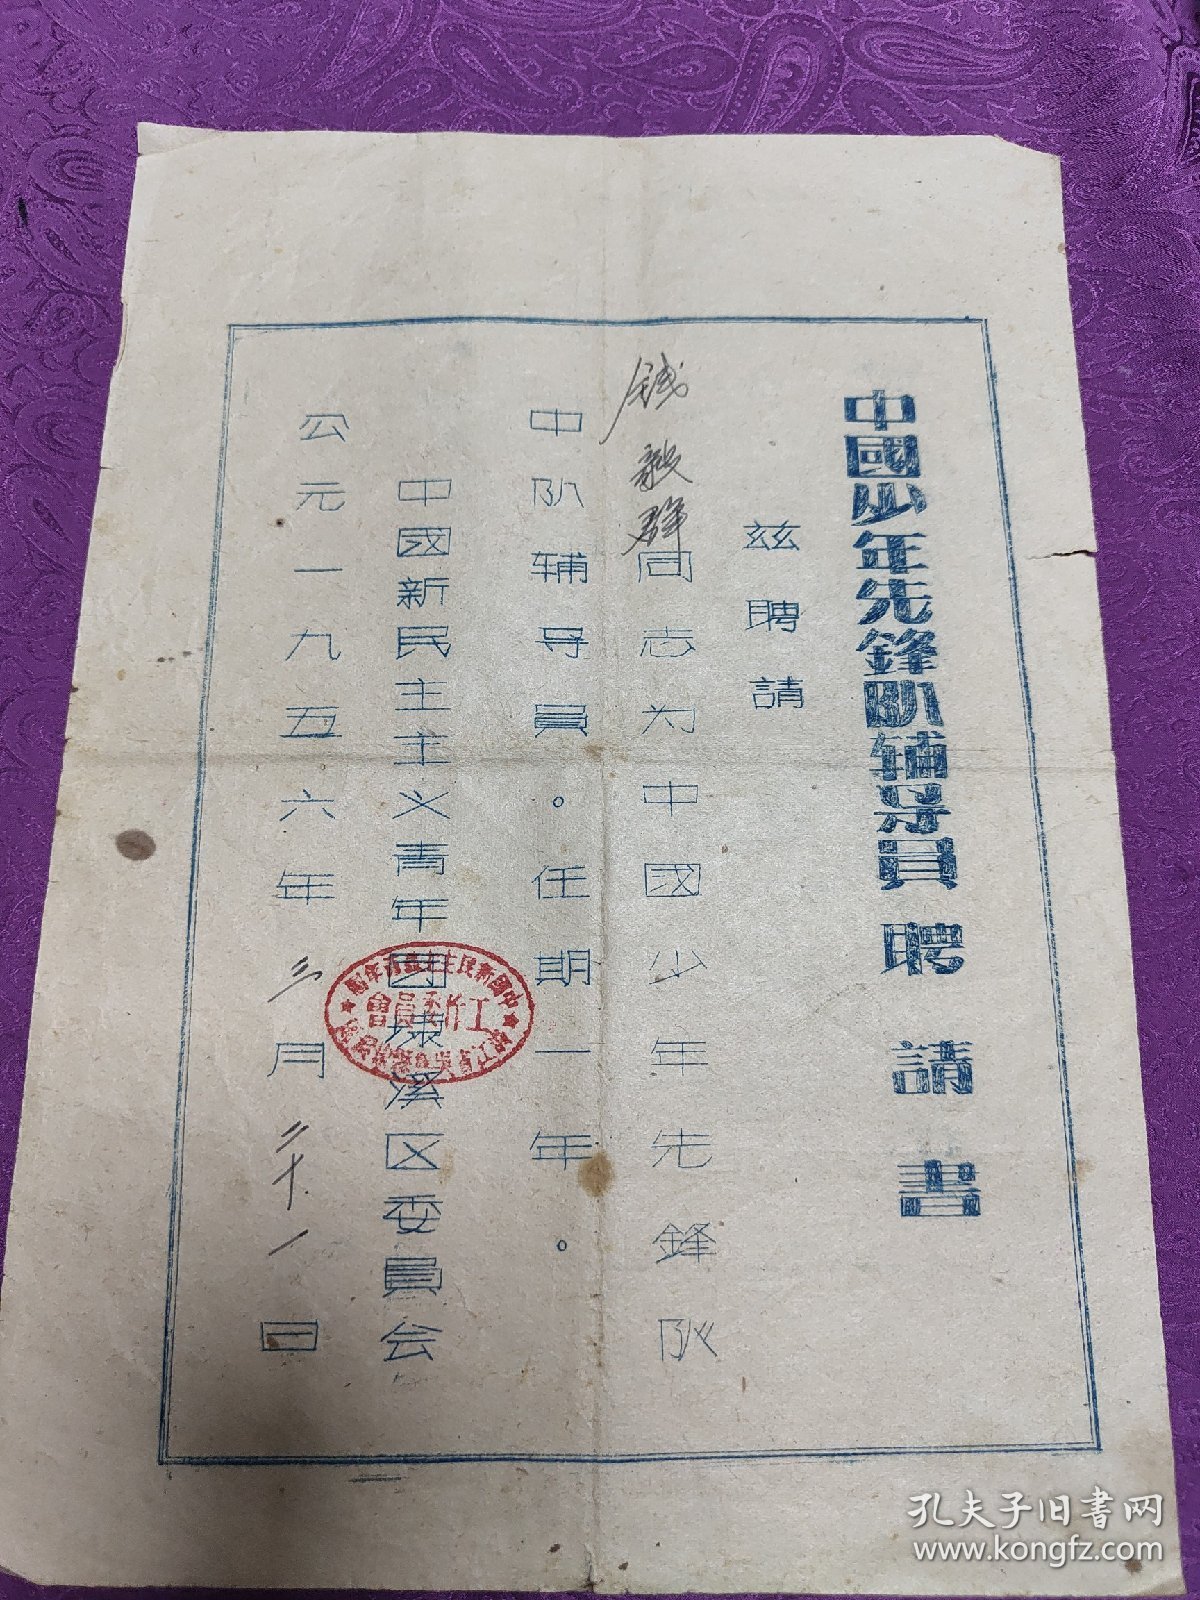 中國少年先鋒队辅导員聘請書
兹聘請
钱毅群同志为中國少年先鋒队
中队辅导員。任期一年。
中國新民主主义青年團埭溪区委員会
公元一九五六年三月二十一日
中國新民主主義青年團
工作委員會
孔夫子旧书网
www.kongfz.com